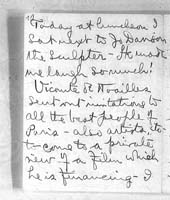 Today at luncheon I
sat next to Jo Davidson
the sculptor - He made
me laugh so much!
Vicomte de Noailles
sent out invitations to
all the best people of
Paris - also artists, etc -
to come to a private
view of a Film which
he is financing - I